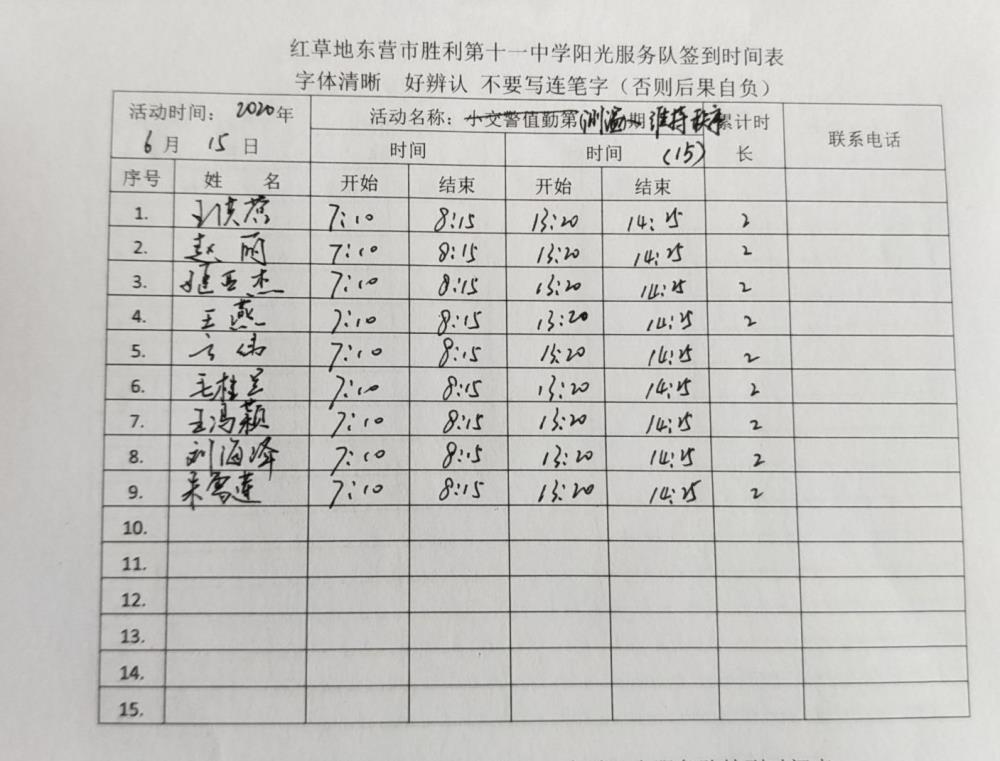 红草地东营市胜利第十一中学阳光服务队签到时间表
字体清晰 好辨认 不要写连笔字（否则后果自负）
活动时间： 2020年 活动名称：小交警值勤第 期 测温 维持秩序 累计时 联系电话
6月 15日 时间 时间 (15) 长
序号 姓 名 开始 结束 开始 结束
1. 7:10 8:15 13:20 14:25 2
2. 赵丽 7:10 8:15 13:20 14:25 2
3. 7:10 8:15 13:20 14:25 2
4. 王燕 7:10 8:15 13:20 14:25 2
5. 7:10 8:15 13:20 14:25 2
6. 毛桂兰 7:10 8:15 13:20 14:25 2
7. 王冯颖 7:10 8:15 13:20 14:25 2
8. 刘海峰 7:10 8:15 13:20 14:25 2
9. 7:10 8:15 13:20 14:25 2
10.
11.
12.
13.
14.
15.